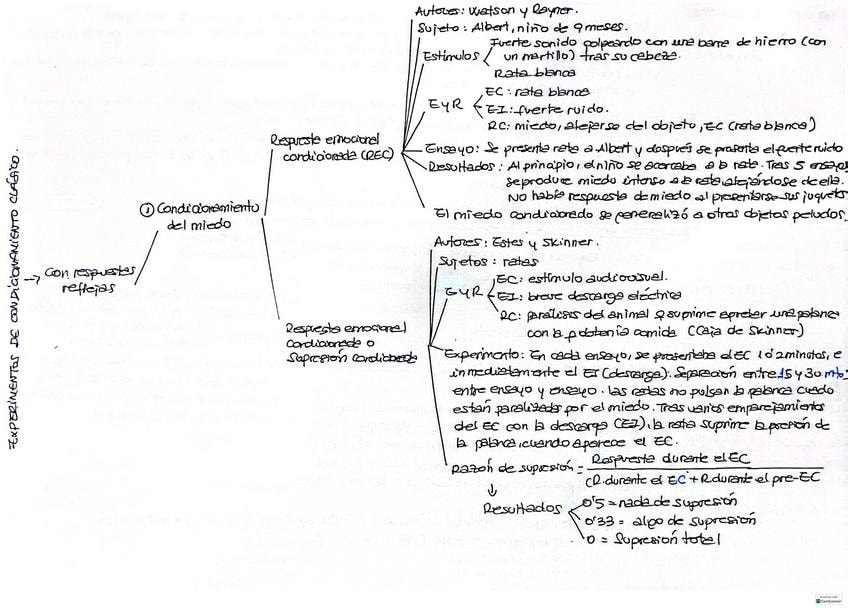 EXPERIMENTOS DE CONDICIONAMIENTO CLÁSICO.
→ Con respuestas
reflejas
① Condicionamiento
del miedo
Respuesta emocional
condicionada (REC)
Autores: Watson y Rayner.
Sujeto: Albert, niño de 9 meses.
Estímulos
Fuerte sonido golpeando con una barra de hierro (con
un martillo) tras su cabeza.
Rata blanca
E y R
EC: rata blanca
EI: fuerte ruido.
RC: miedo, alejarse del objeto, EC (rata blanca)
Ensayo: Se presenta rata a Albert y después se presenta el fuerte ruido
Resultados: Al principio, el niño se acercaba a la rata. Tras 5 ensayos
se produce miedo intenso a la rata, alejándose de ella.
No había respuesta de miedo al presentarse sus juguetes
El miedo condicionado se generalizó a otros objetos peludos.
Respuesta emocional
condicionada o
Supresión condicionada
Autores: Estes y Skinner.
Sujetos: ratas
E y R
EC: estímulo audiovisual.
EI: breve descarga eléctrica
RC: parálisis del animal q suprime apretar una palanca
con la q obtenía comida (Caja de Skinner)
Experimento: En cada ensayo, se presentaba el EC 1 o 2 minutos, e
inmediatamente el EI (descarga). Separación entre 15 y 30 mtos
entre ensayo y ensayo. Las ratas no pulsan la palanca cuando
están paralizadas por el miedo. Tras varios emparejamientos
del EC con la descarga (EI), la rata suprime la presión de
la palanca, cuando aparece el EC.
Razón de supresión = Respuesta durante el EC
(R. durante el EC + R durante el pre-EC
↓
Resultados
0'5 = nada de supresión
0'33 = algo de supresión
0 = Supresión total
CamScanner